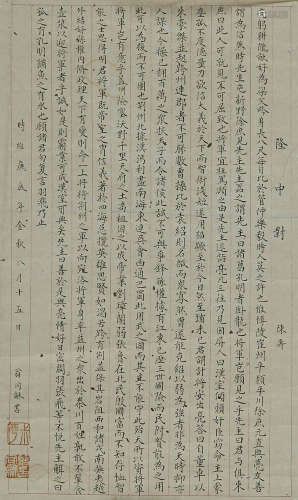 隆中對 陳壽
亮躬耕隴畝好為梁父吟身長八尺每自比於管仲樂毅時人莫之許也惟博陵崔州平潁川徐庶元直與亮友善
謂為信然時先主屯新野徐庶見先主先主器之謂先主曰諸葛孔明者臥龍也將軍豈願見之乎先主曰君與俱來
庶曰此人可就見不可屈致也將軍宜枉駕顧之由是先主遂詣亮凡三往乃見因屏人曰漢室傾頹姦臣竊命主上蒙
塵孤不度德量力欲信大義於天下而智術淺短遂用猖蹶至於今日然志猶未已君謂計將安出亮答曰自董卓以
來豪傑並起跨州連郡者不可勝數曹操比於袁紹則名微而眾寡然操遂能克紹以弱為強者非惟天時抑亦
人謀也今操已擁百萬之眾挾天子而令諸侯此誠不可與爭鋒孫權據有江東已歷三世國險而民附賢能為之用
此可以為援而不可圖也荊州北據漢沔利盡南海東連吳會西通巴蜀此用武之國而其主不能守此殆天所以資將軍
將軍豈有意乎益州險塞沃野千里天府之土高祖因之以成帝業劉璋闇弱張魯在北民殷國富而不知存恤智
能之士思得明君將軍既帝室之冑信義著於四海總攬英雄思賢如渴若跨有荊益保其巖阻西和諸戎南撫夷越
外結好孫權內修政理天下有變則命一上將將荊州之軍以向宛洛將軍身率益州之眾出於秦川百姓孰敢不簞食
壺漿以迎將軍者乎誠如是則霸業可成漢室可興矣先主曰善於是與亮情好日密關羽張飛等不悅先主解之曰
孤之有孔明猶魚之有水也願諸君勿復言羽飛乃止
時維庚戌年金秋八月十五日 翁同龢書